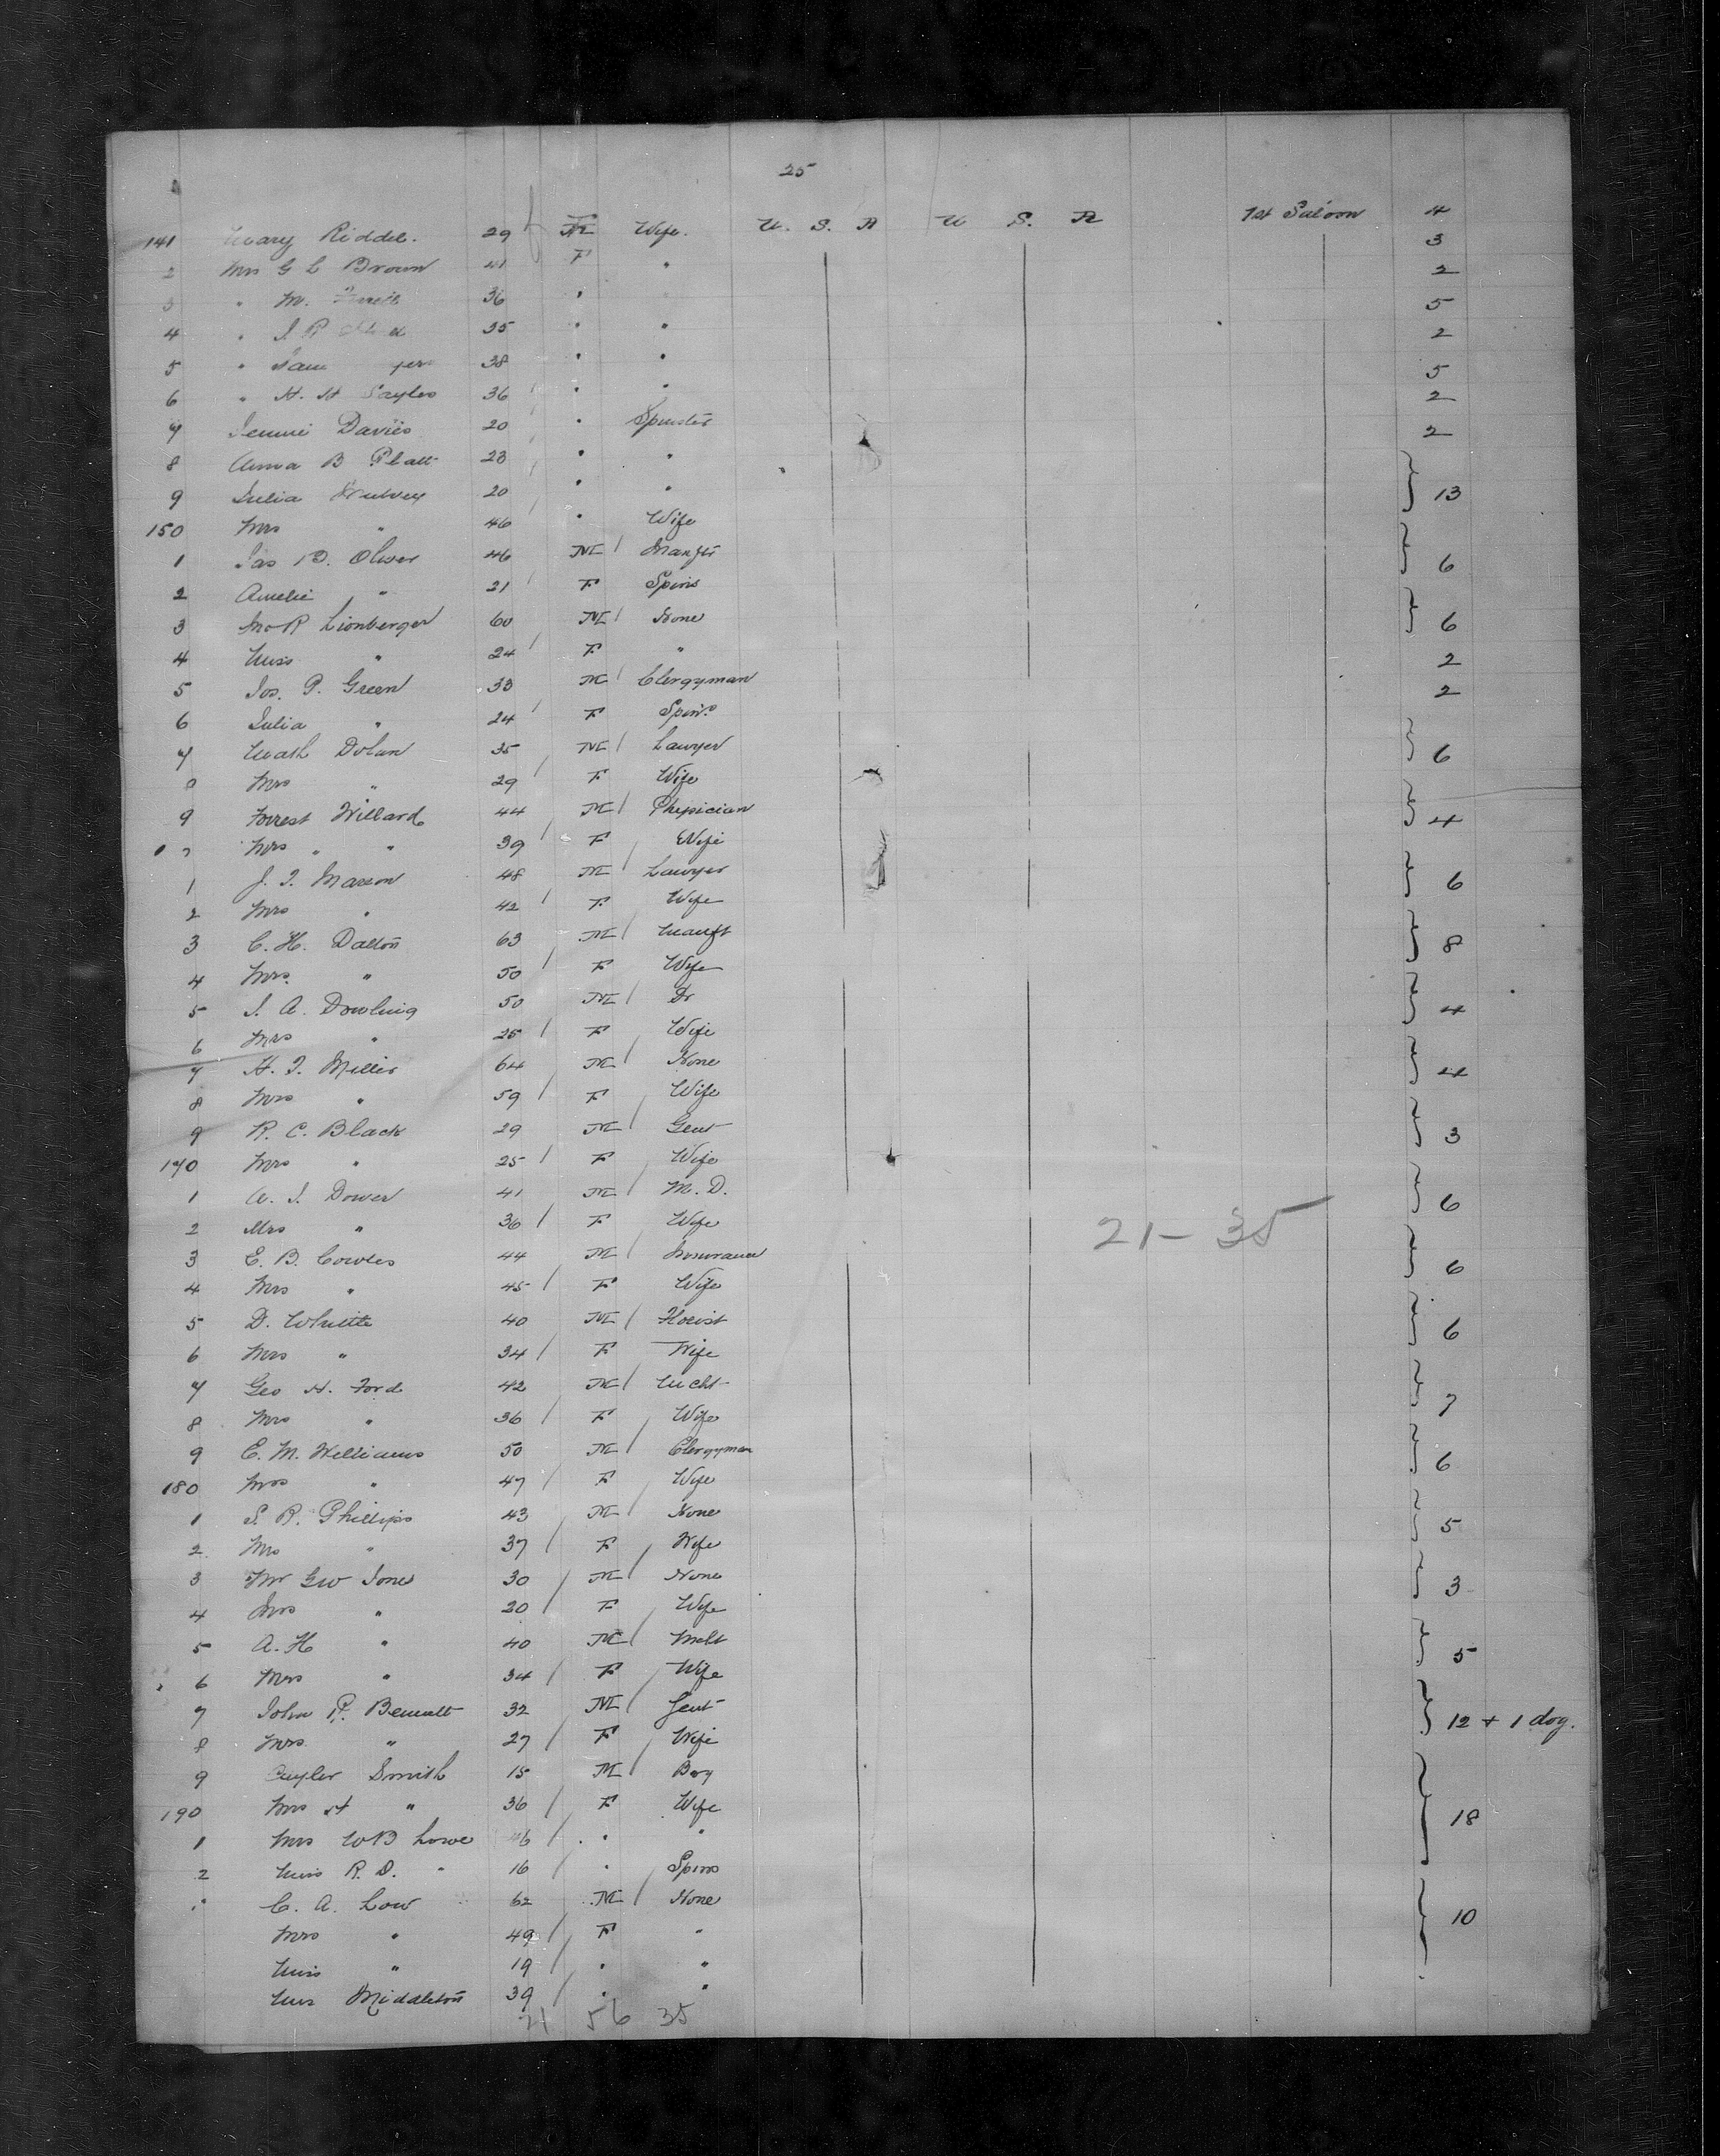 25
141 Mary Riddel. 29 F Wife. U. S. A U S. A 1st Saloon 4
2 Mrs G L Brown 41 F " 3
3 " M. 36 " 2
4 " J R 35 " " 5
5 " 38 " " 2
6 " H. H Sayles 36 " " 5
7 Jennie Davies 20 " Spinster 2
8 Anna B Platt 23 " " 2
9 Julia 20 " "
150 Mrs " 46 " Wife } 13
1 Jas D. Oliver 46 M Manftr
2 Amelie " 21 F Spins } 6
3 Lionberger 60 M None
4 Miss " 24 F " } 6
5 Jos. P. Green 33 M Clergyman 2
6 Julia " 24 F Spins 2
7 Wash Dolan 35 M Lawyer
8 Mrs " 29 F Wife } 6
9 Forrest Willard 44 M Physician
Mrs " " 39 F Wife } 4
1 J. T. Marson 48 M Lawyer
2 Mrs " 42 F. Wife } 6
3 C. H. Dalton 63 M Manft
4 Mrs. " 50 F Wife } 8
5 J. A. Dowling 50 M Dr
6 Mrs " 25 F Wife } 4
7 H. T. Miller 64 M None
8 Mrs " 59 F Wife } 4
9 R. C. Black 29 M Gent
170 Mrs " 25 F Wife } 3
1 A. J. Dower 41 M M. D.
2 Mrs " 36 F Wife } 6
21 - 35
3 E. B. Cowles 44 M Insurance
4 Mrs " 45 F Wife } 6
5 D. Whittle 40 M Florist
6 Mrs " 34 F Wife } 6
7 Geo H. Ford 42 M Mcht
8 Mrs " 36 F Wife } 7
9 E. M. Williams 50 M Clergyman
180 Mrs " 47 F Wife } 6
1 S. R. Phillips 43 M None
2 Mrs " 37 F Wife } 5
3 Mr Geo Jones 30 M None
4 Mrs " 20 F Wife } 3
5 A. H " 40 M Mcht
6 Mrs " 34 F Wife } 5
7 John P. Bennett 32 M Gent
8 Mrs " 27 F Wife } 12 + 1 dog.
9 Cuyler Smith 15 M Boy
190 Mrs H " 36 F Wife
1 Mrs W B Lowe 46 " " } 18
2 Miss R. D. " 16 " Spins
C. A. Low 62 M None
Mrs " 49 F " } 10
Miss " 19 " "
Middleton 39 " "
21 56 35